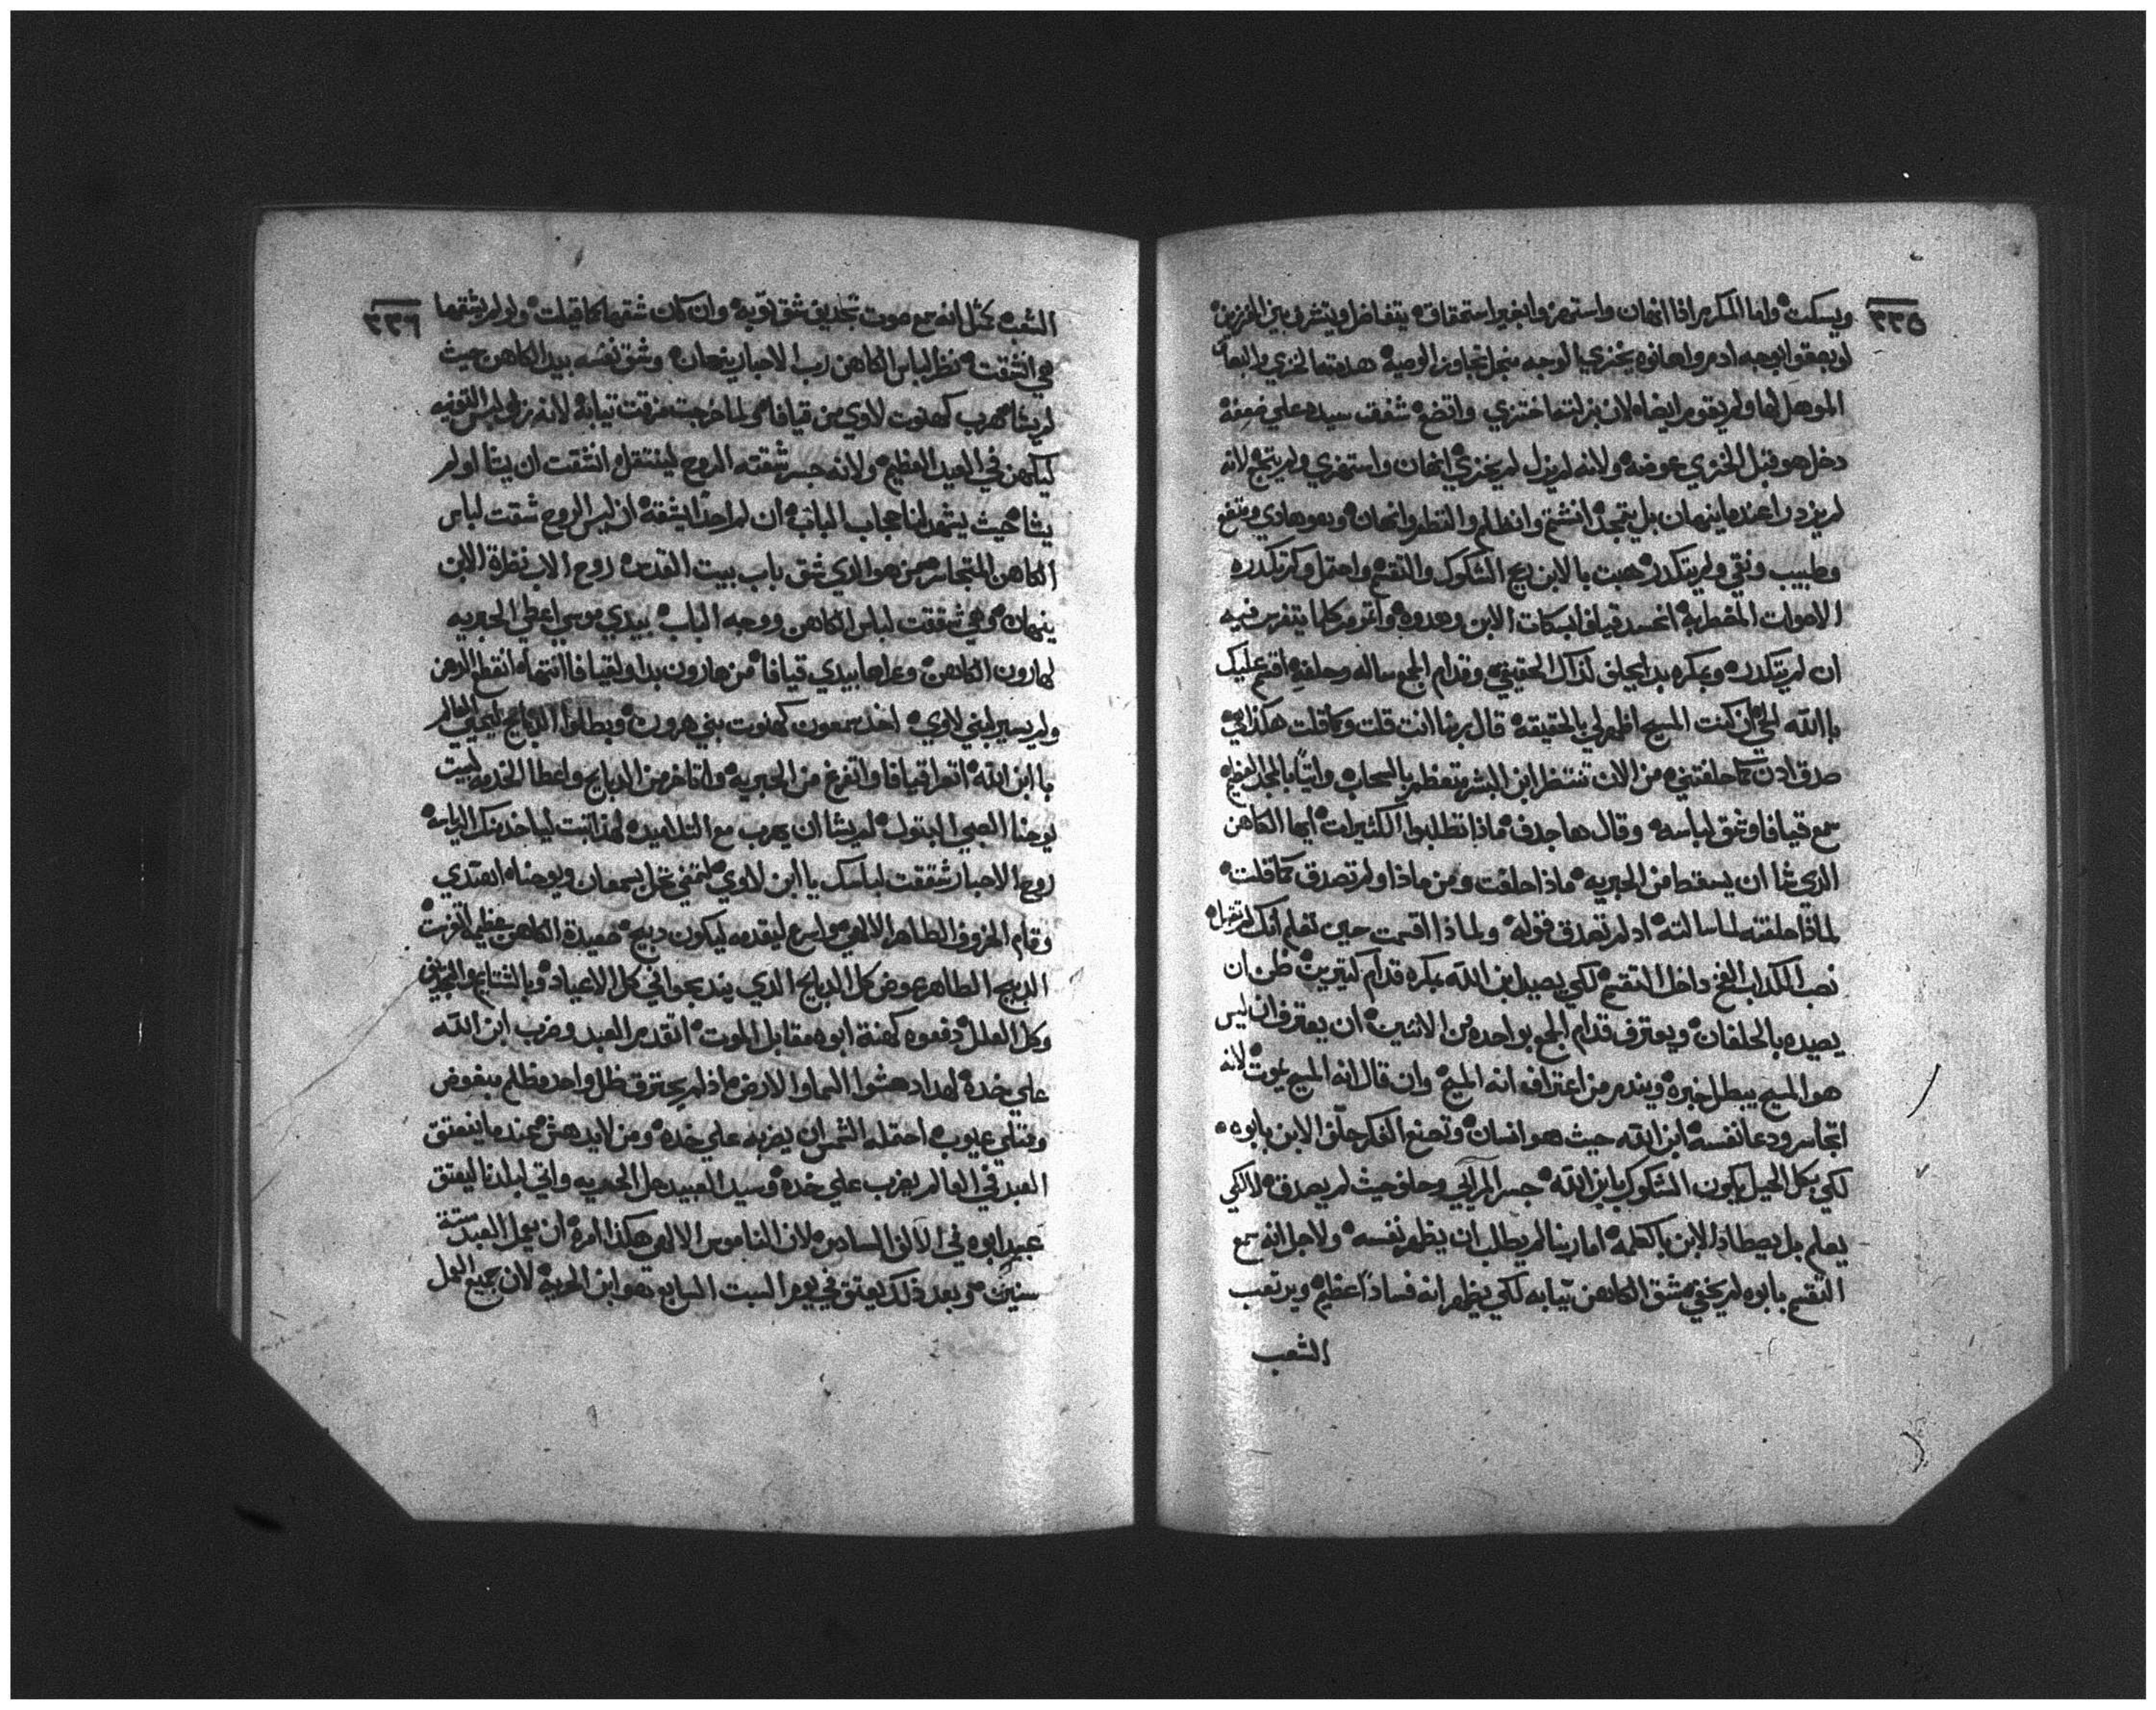 ٣٣٥
ويسكت واما المكرم اذا انهان واستهزوا بغير استحقاق يتفاضل ويتشرف بين
لو بصقوا بوجه ادم واهانوه بخزي الوجه لانه تجاوز الوصية هذه
الموهل لها ولم يقوم ايضاه لان بزلته اختزي واتضع شفف سيده علي ضعفه
دخل هو قبل الخزي عوضه ولانه لم يزل لم يختزي انهان واستهزي ولم لانه
لم يزدرا عنده اينهان بل يتمجد انشتم وانظلم والتطم وانهان وهو هادي
وطبيب ونقي ولم يتكدره هبت بالابن ريح الشكوك والتقمه واحتمل ولم تكدره
الاصوات المضطربة انحسد قيافا بسكات الابن وهدوه كلما يتفرس فيه
ان لم يتكدره وبمكره بدا يحلف لذاك الحقيقي وقدام الجمع ساله وحلفه اقسم عليك
باالله الحي ان كنت المسيح اظهر لي بالحقيقه قال ربنا انت قلت وكما قلت هكذا هي
صدق ادن كما حلفتني من الان تنتظر ابن البشر بالسحاب واتيا بالمجد العظيم
سمع قيافا وشق لباسه وقال ها جدف ماذا تطلبوا الكثيرات ايها الكاهن
الذي شا ان يسقط من الحبريه ماذا حلفت ومن ماذا ولم تصدق كما قلت
لماذا حلفته لما سالته اد لم تصدق قوله ولماذا اقسمت حين تعلم انك لم تقبله
نصب المكداب الفخ داخل التقسم لكي يصيد ابن الله بمكره قدام كتيرين ظن ان
يصيده بالحلفان ويعترف قدام الجمع بواحده من الاتنين ان يعترف ان ليس
هو المسيح يبطل خبره ويندم من اعترافه انه المسيح وان قال انه المسيح يموت لانه
اتجاسر ودعا نفسه ابن الله حيث هو انسان وتصنع الفكر حلف الابن بابوه
لكي بكل الحيل يكون الشكوك بابن الله جسر المرآي وحلف حيث لم يصدق لا لكي
يعلم بل يصطاد الابن بالكلمه اما ربنا لم يطلب ان يظهر نفسه ولاجل انه سمع
التقسم بابوه لم يختفي شق الكاهن تيابه لكي يظهر انه فسادا عظيم ويرتعب
الشعب
٣٣٦
الشعب كمثل انه سمع صوت تجديف شق توبه وان كان شقها كما قيلت ولو لم يشقها
هي انشقت نظر لباس الكاهن رب الاحبار ينهان وشق نفسه بيد الكاهن حيث
لم يشا تهرب كهنوت لاوي من قيافا ولما خرجت مزقت تيابه لانه لبس التونيه
ليكهن في العيد العظيم ولانه جسر شقته الروح لينتقل انشقت ان يشا او لم
يشا حيث يشهد لنا حجاب الباب ان لم احدا يشقه ان ليس الروح شقت لباس
الكاهن المتجاسر من هو الذي شق باب بيت القدس روح الاب نظرة الابن
ينهان وهي شققت لباس الكاهن ووجه الباب بيدي موسي اعطي الحبريه
لهارون الكاهن وعراها بيدي قيافا من هارون بدا ولقيافا انتها انقطع الدهن
ولم يسير لبني لاوي اخد سمعون كهنوت بني هرون وبطلوا الدبايح ليحيي العالم
يا ابن الله اتعرا قيافا واتفرغ من الحبريه واتاخر من الدبايح واعطا الخدمه لبيت
يوحنا الصبي البتول لم يشا ان يهرب مع التلاميد لهذا تبت لياخد منك الرياسه
روح الاحبار شققت لباسك يا ابن لاوي بسمعان ويوحنا ابتدي
وقام الخروف الطاهر الالهي واسرع ليقدمه ليكون دبيح صعيدة الكاهن
الدبيح الطاهر عوض كل الدبايح الذي يندبحوا في كل الاعياد وبالشتايم
وكل العلل دفعوه كهنة ابوه مقابل الموت اتقدم العبد وضرب ابن الله
علي خده لهدا دهشوا السما والارض اذ لم يحترق ظل واحد مظلم مبغوض
ومتلي عيوب احتمله الشمس ان يضربه علي خده ومن لا يدهش عندما ينعتق
العبد في العالم يضرب علي خده وسيد العبيد عمل الحريه واتي لبلدنا ليعتق
عبيد ابوه في الالف السادس لان الناموس الالهي هكذا امره ان يعمل العبد ستة
سنين وبعد ذلك يعتق في يوم السبت السابع هو ابن الحرية لان جميع العمل